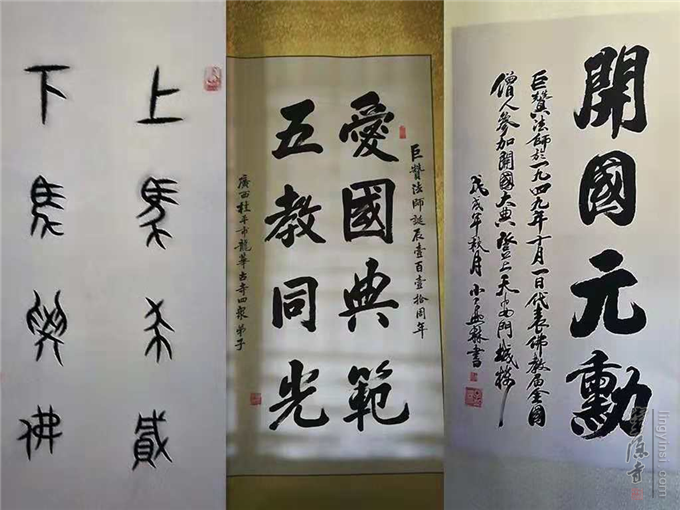 上馬杀賊
下馬學佛
巨贊法師誕辰壹百壹拾周年
愛國典範
五教同光
廣西桂平市龍華古寺四衆弟子
開國元勳
巨贊法師於一九四九年十月一日代表佛教届全國
僧人參加開國大典登上天安門城樓
戊戌年秋月
靈隱寺
lingyinsi.com